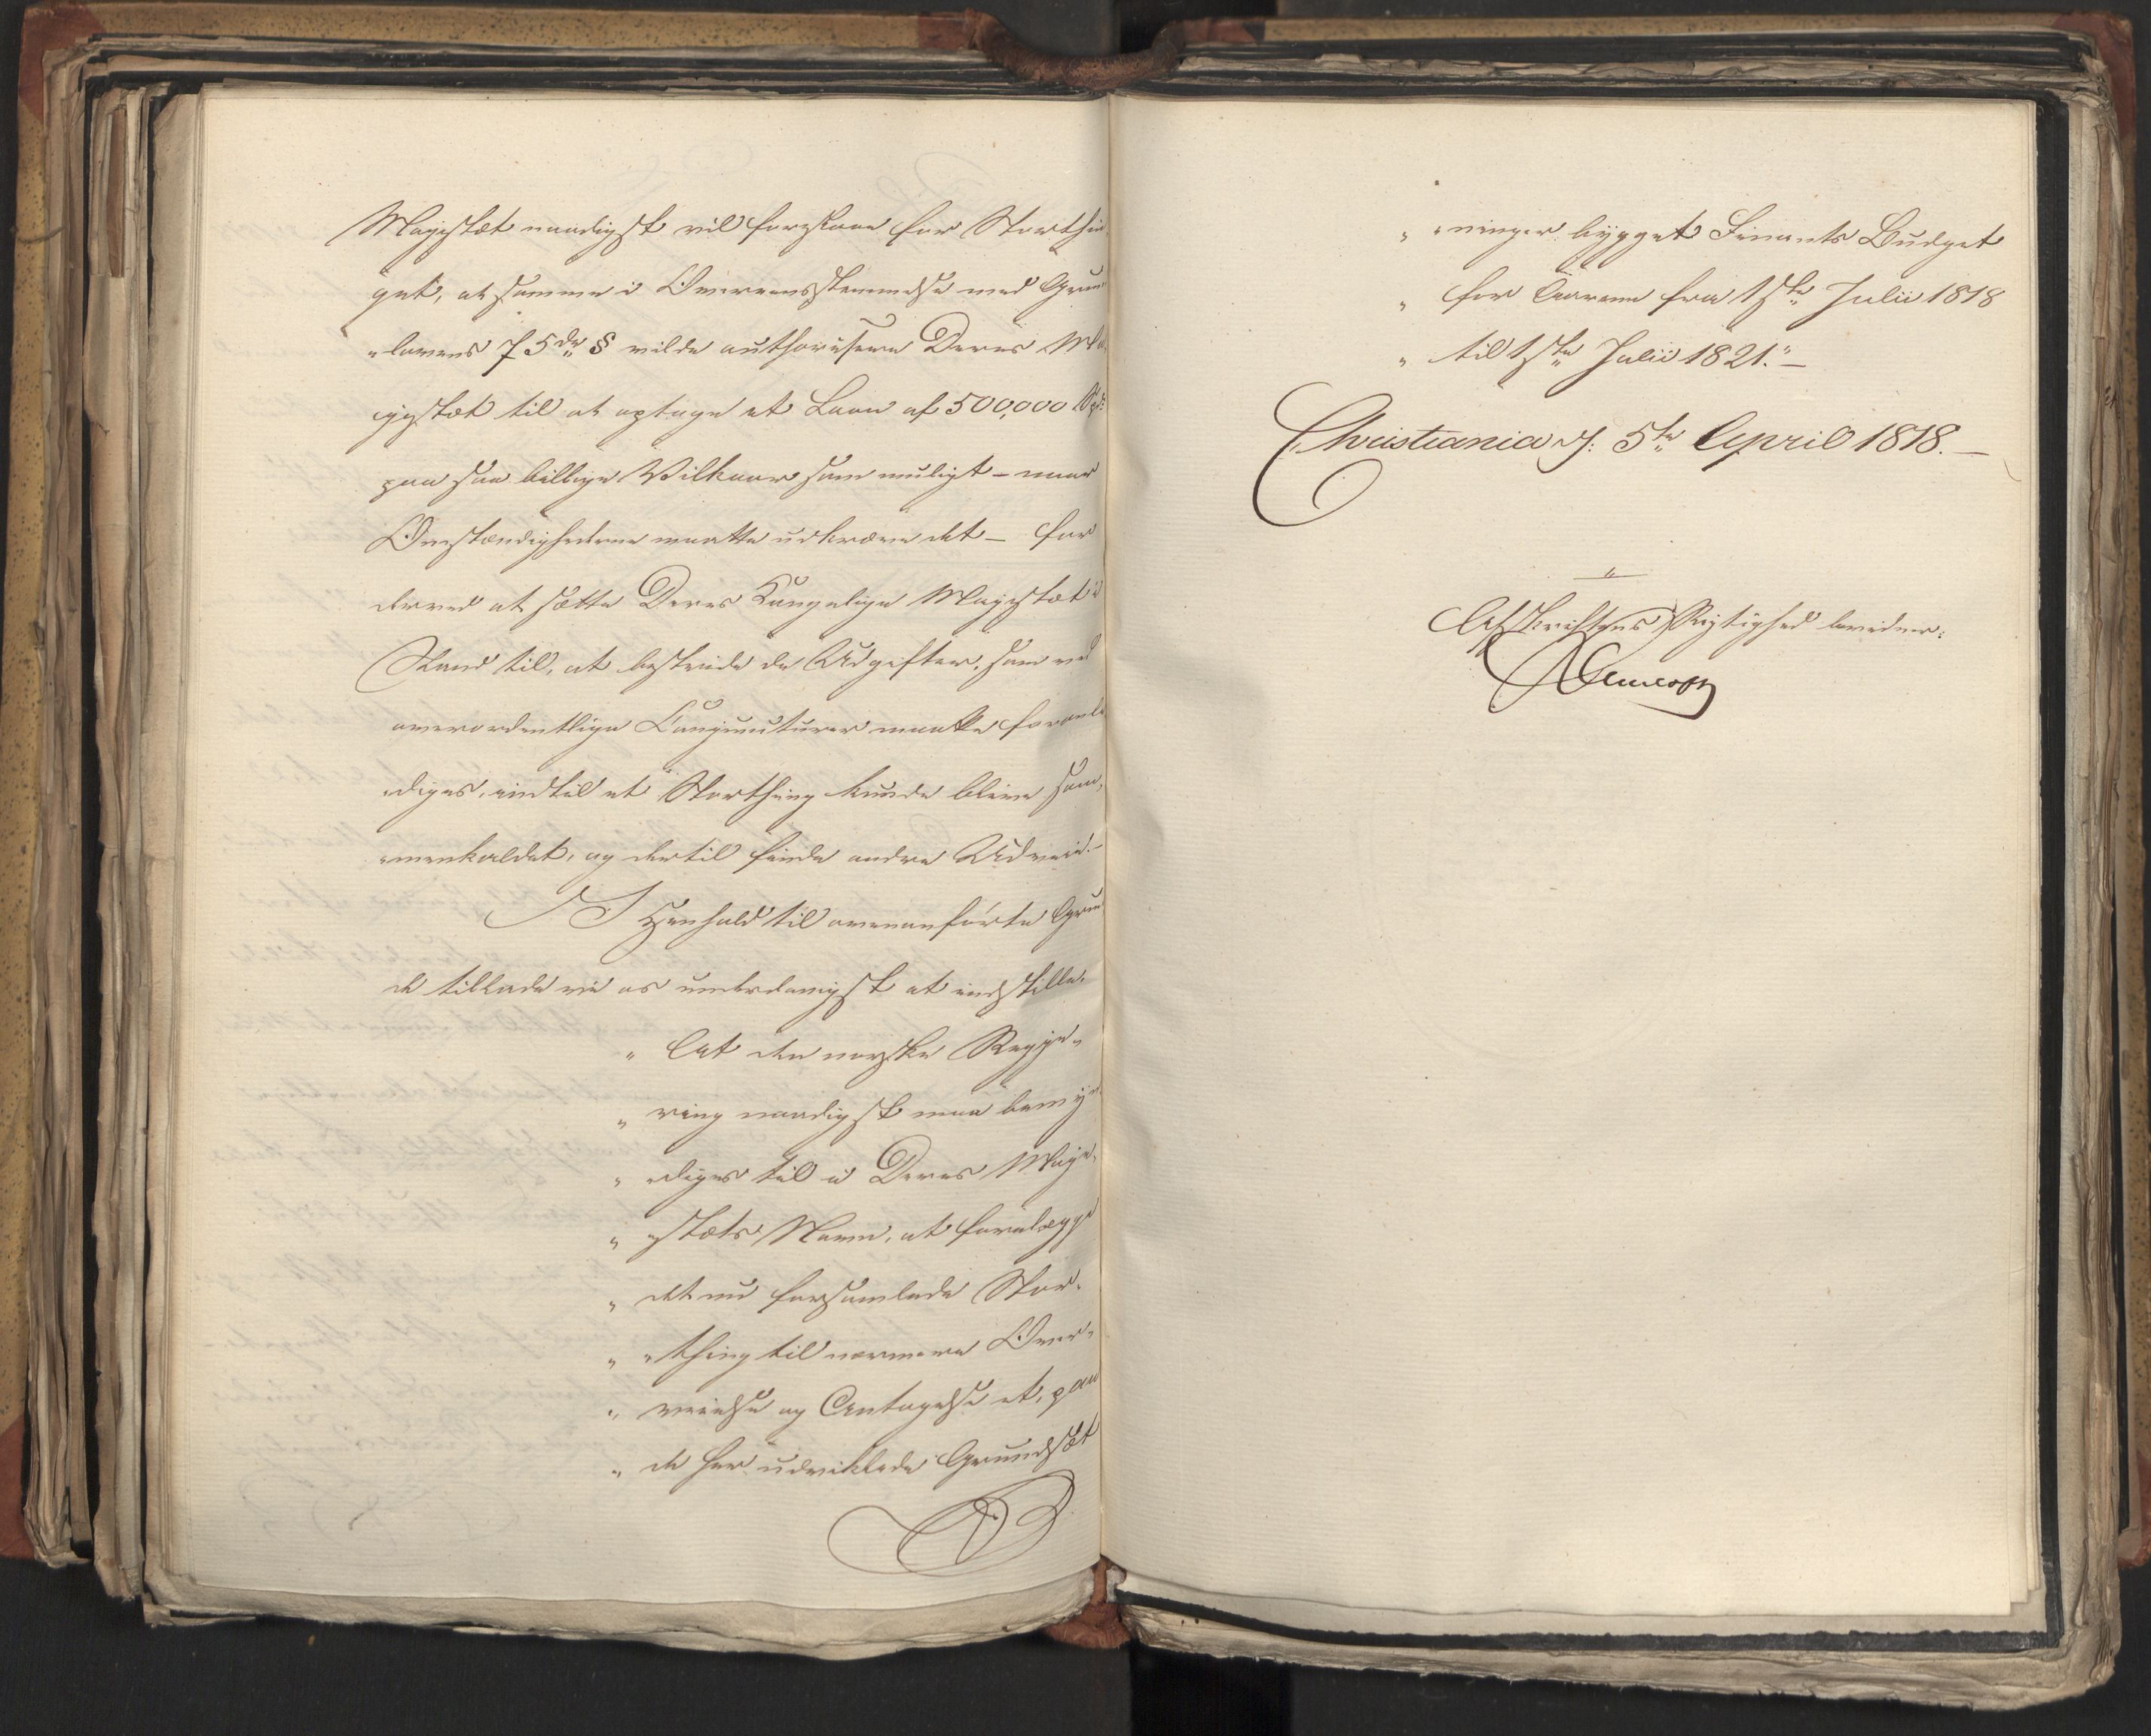 Majestæt naadigst vil foreslaae for Storthin-
get, at samme i Overeensstemmelse med Grun-
"lovens 75de § vilde authorisere Deres Ma-
jestæt til at optage et Laan af 500,000
paa saa billige Vilkaar som muligt - naar
Omstændighederne maatte udkræve det - for
derved at sætte Deres Kongelige Majestæt i
Stand til, at bestride de Udgifter, som ved
overordentlige Conjuncturer maatte foranle
"diges, indtil et Storthing kunde blive sam-
"menkaldet, og dertil finde andre Udveie.-
I Henhold til ovenanførte Grun
de tillade vi os underdanigst at indstille:
" At den norske Regje-
" ring naadigst maa bemyn
" "diges til i Deres Maje-
" "stæts Navn, at forelægge
" det nu forsamlede Stor-
" "thing til nærmere Over-
" veielse og Antagelse et, paa
" de her udviklede Grundsæt
" "ninger bygget Finants Budget
" for Aarene fra 1ste Julii 1818
" til 1ste Julii 1821." -
Christiania d: 5te April 1818. -
Afskriftens Rigtighed bevidner: